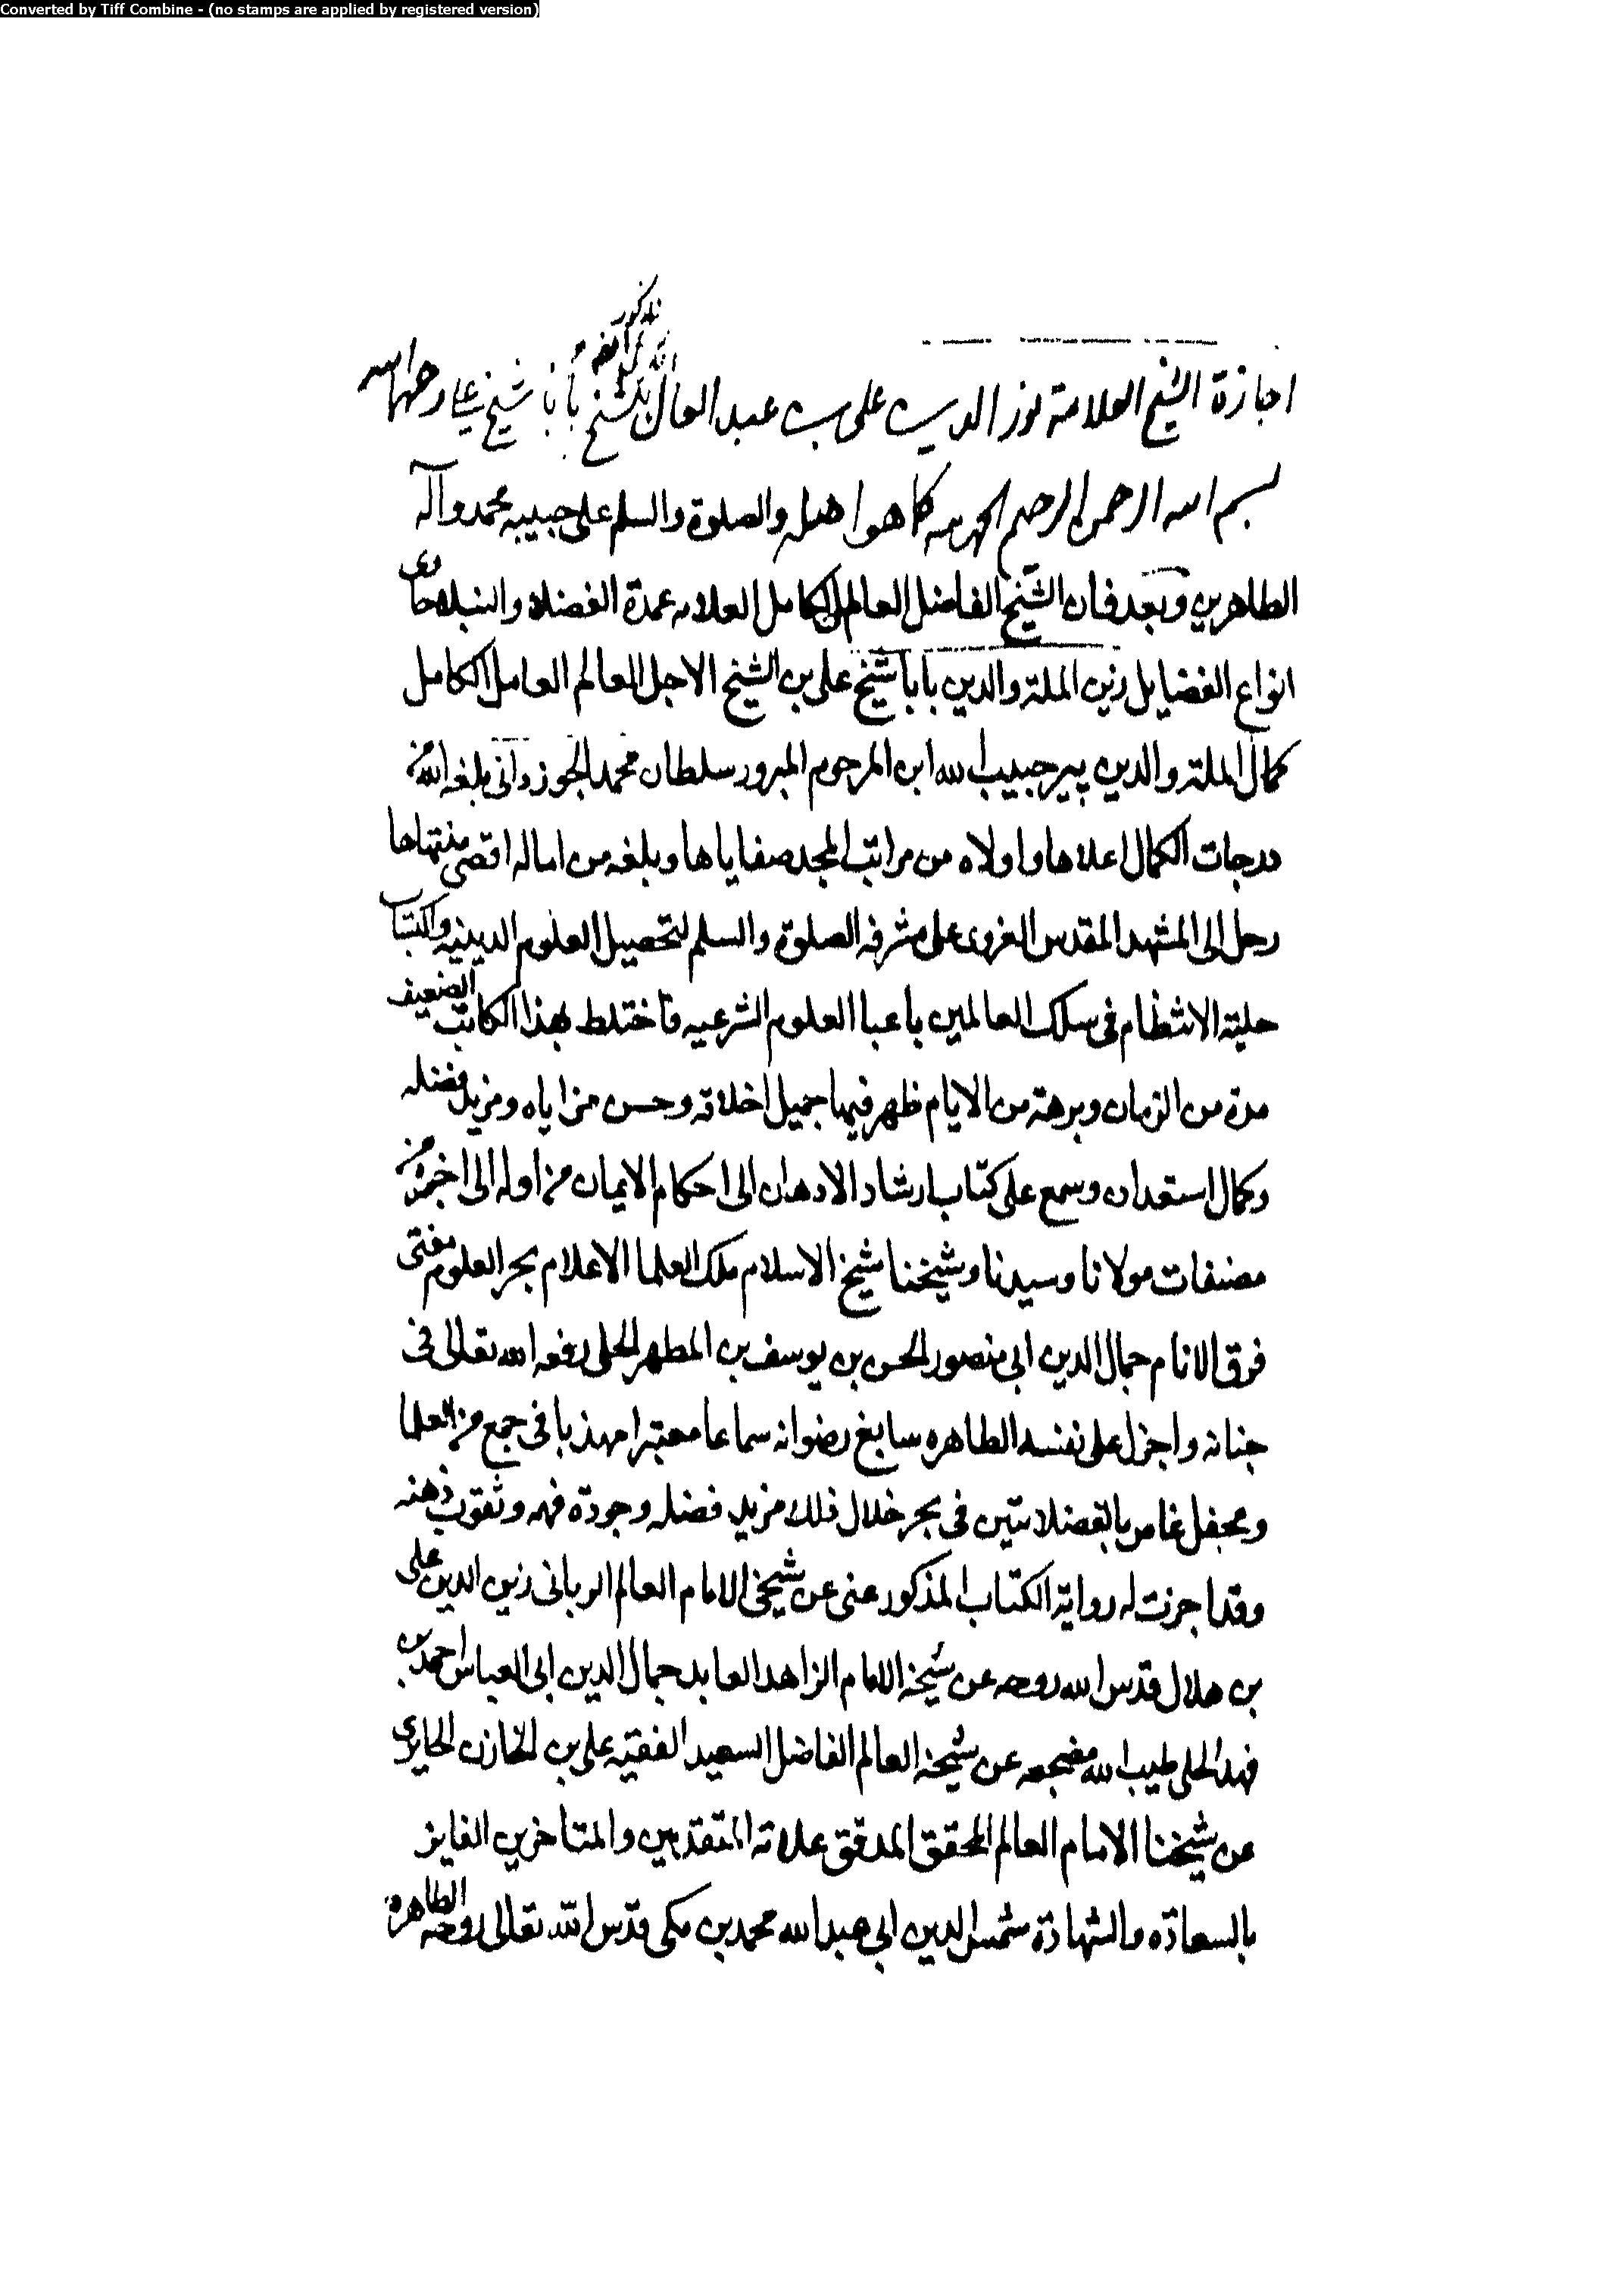 Converted by Tiff Combine - (no stamps are applied by registered version)
اجازة الشيخ العلامة نور الدين على بن عبد العال للشيخ بابا شيخ على رحمهما الله
بسم الله الرحمن الرحيم الحمد لله كما هو اهله والصلوة والسلم على حبيبه محمد وآله
الطاهرين وبعد فان الشيخ الفاضل العالم الكامل العلامه عمدة الفضلاء والنبلاء حاوى
انواع الفضايل زين الملة والدين بابا شيخ على بن الشيخ الاجل العالم العامل الكامل
كمال الملة والدين پير حبيب الله ابن المرحوم المبرور سلطان محمد الجوزدانى بلغه الله من
درجات الكمال اعلاها واولاه من مراتب المجد صفاياها وبلغه من اماله اقصى منتهاها
رحل الى المشهد المقدس الغروى على مشرفه الصلوة والسلم لتحصيل العلوم الدينيه واكتساب
حلية الانتظام فى سلك العالمين باعبا العلوم الشرعيه فاختلط بهذا الكاتب الضعيف
مدة من الزمان وبرهة من الايام ظهر فيها جميل اخلاقه وحسن مزاياه ومزيد فضله
وكمال استعداده وسمع على كتاب ارشاد الاذهان الى احكام الايمان من اوله الى اخره من
مصنفات مولانا وسيدنا وشيخنا شيخ الاسلام ملك العلما الاعلام بحر العلوم مفتى
فرق الانام جمال الدين ابى منصور الحسن بن يوسف بن المطهر الحلى رفعه الله تعالى فى
جنانه واجزل على نفسه الطاهره سابغ رضوانه سماعا معتبرا مهذبا فى جمع من العلما
ومحفل غاص بالفضلا تبين فى بحر خلال ذلك مزيد فضله وجودة فهمه وثقوب ذهنه
وقد اجزت له رواية الكتاب المذكور عنى عن شيخى الامام العالم الربانى زين الدين على
بن هلال قدس الله روحه عن شيخه الامام الزاهد العابد جمال الدين ابى العباس احمد بن
فهد الحلى طيب الله مضجعه عن شيخه العالم الفاضل السعيد الفقيه على بن الخازن الحايرى
عن شيخنا الامام العالم المحقق المدقق علامة المتقدمين والمتاخرين الفايز
بالسعادة والشهادة شمس الدين ابى عبد الله محمد بن مكى قدس الله تعالى روحه الطاهره